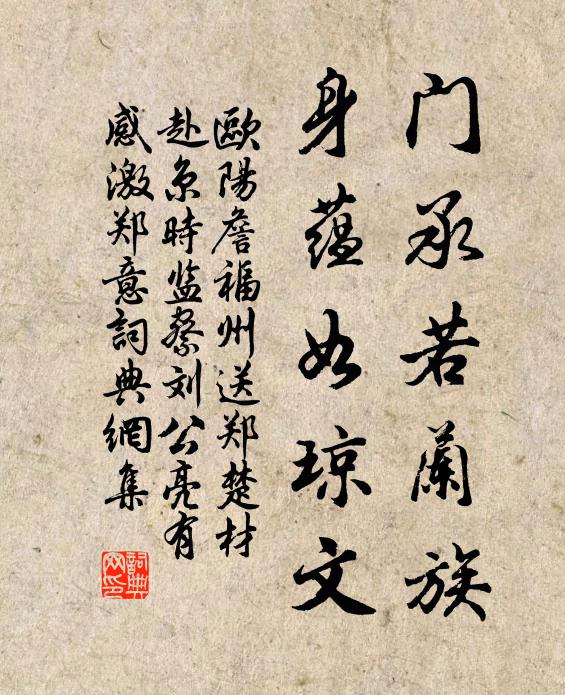 门承若蘭族
身蕴如琼文
歐陽詹福州送郑楚材
赴京時监察刘公亮有
感激郑意詞典網集
詞典网印